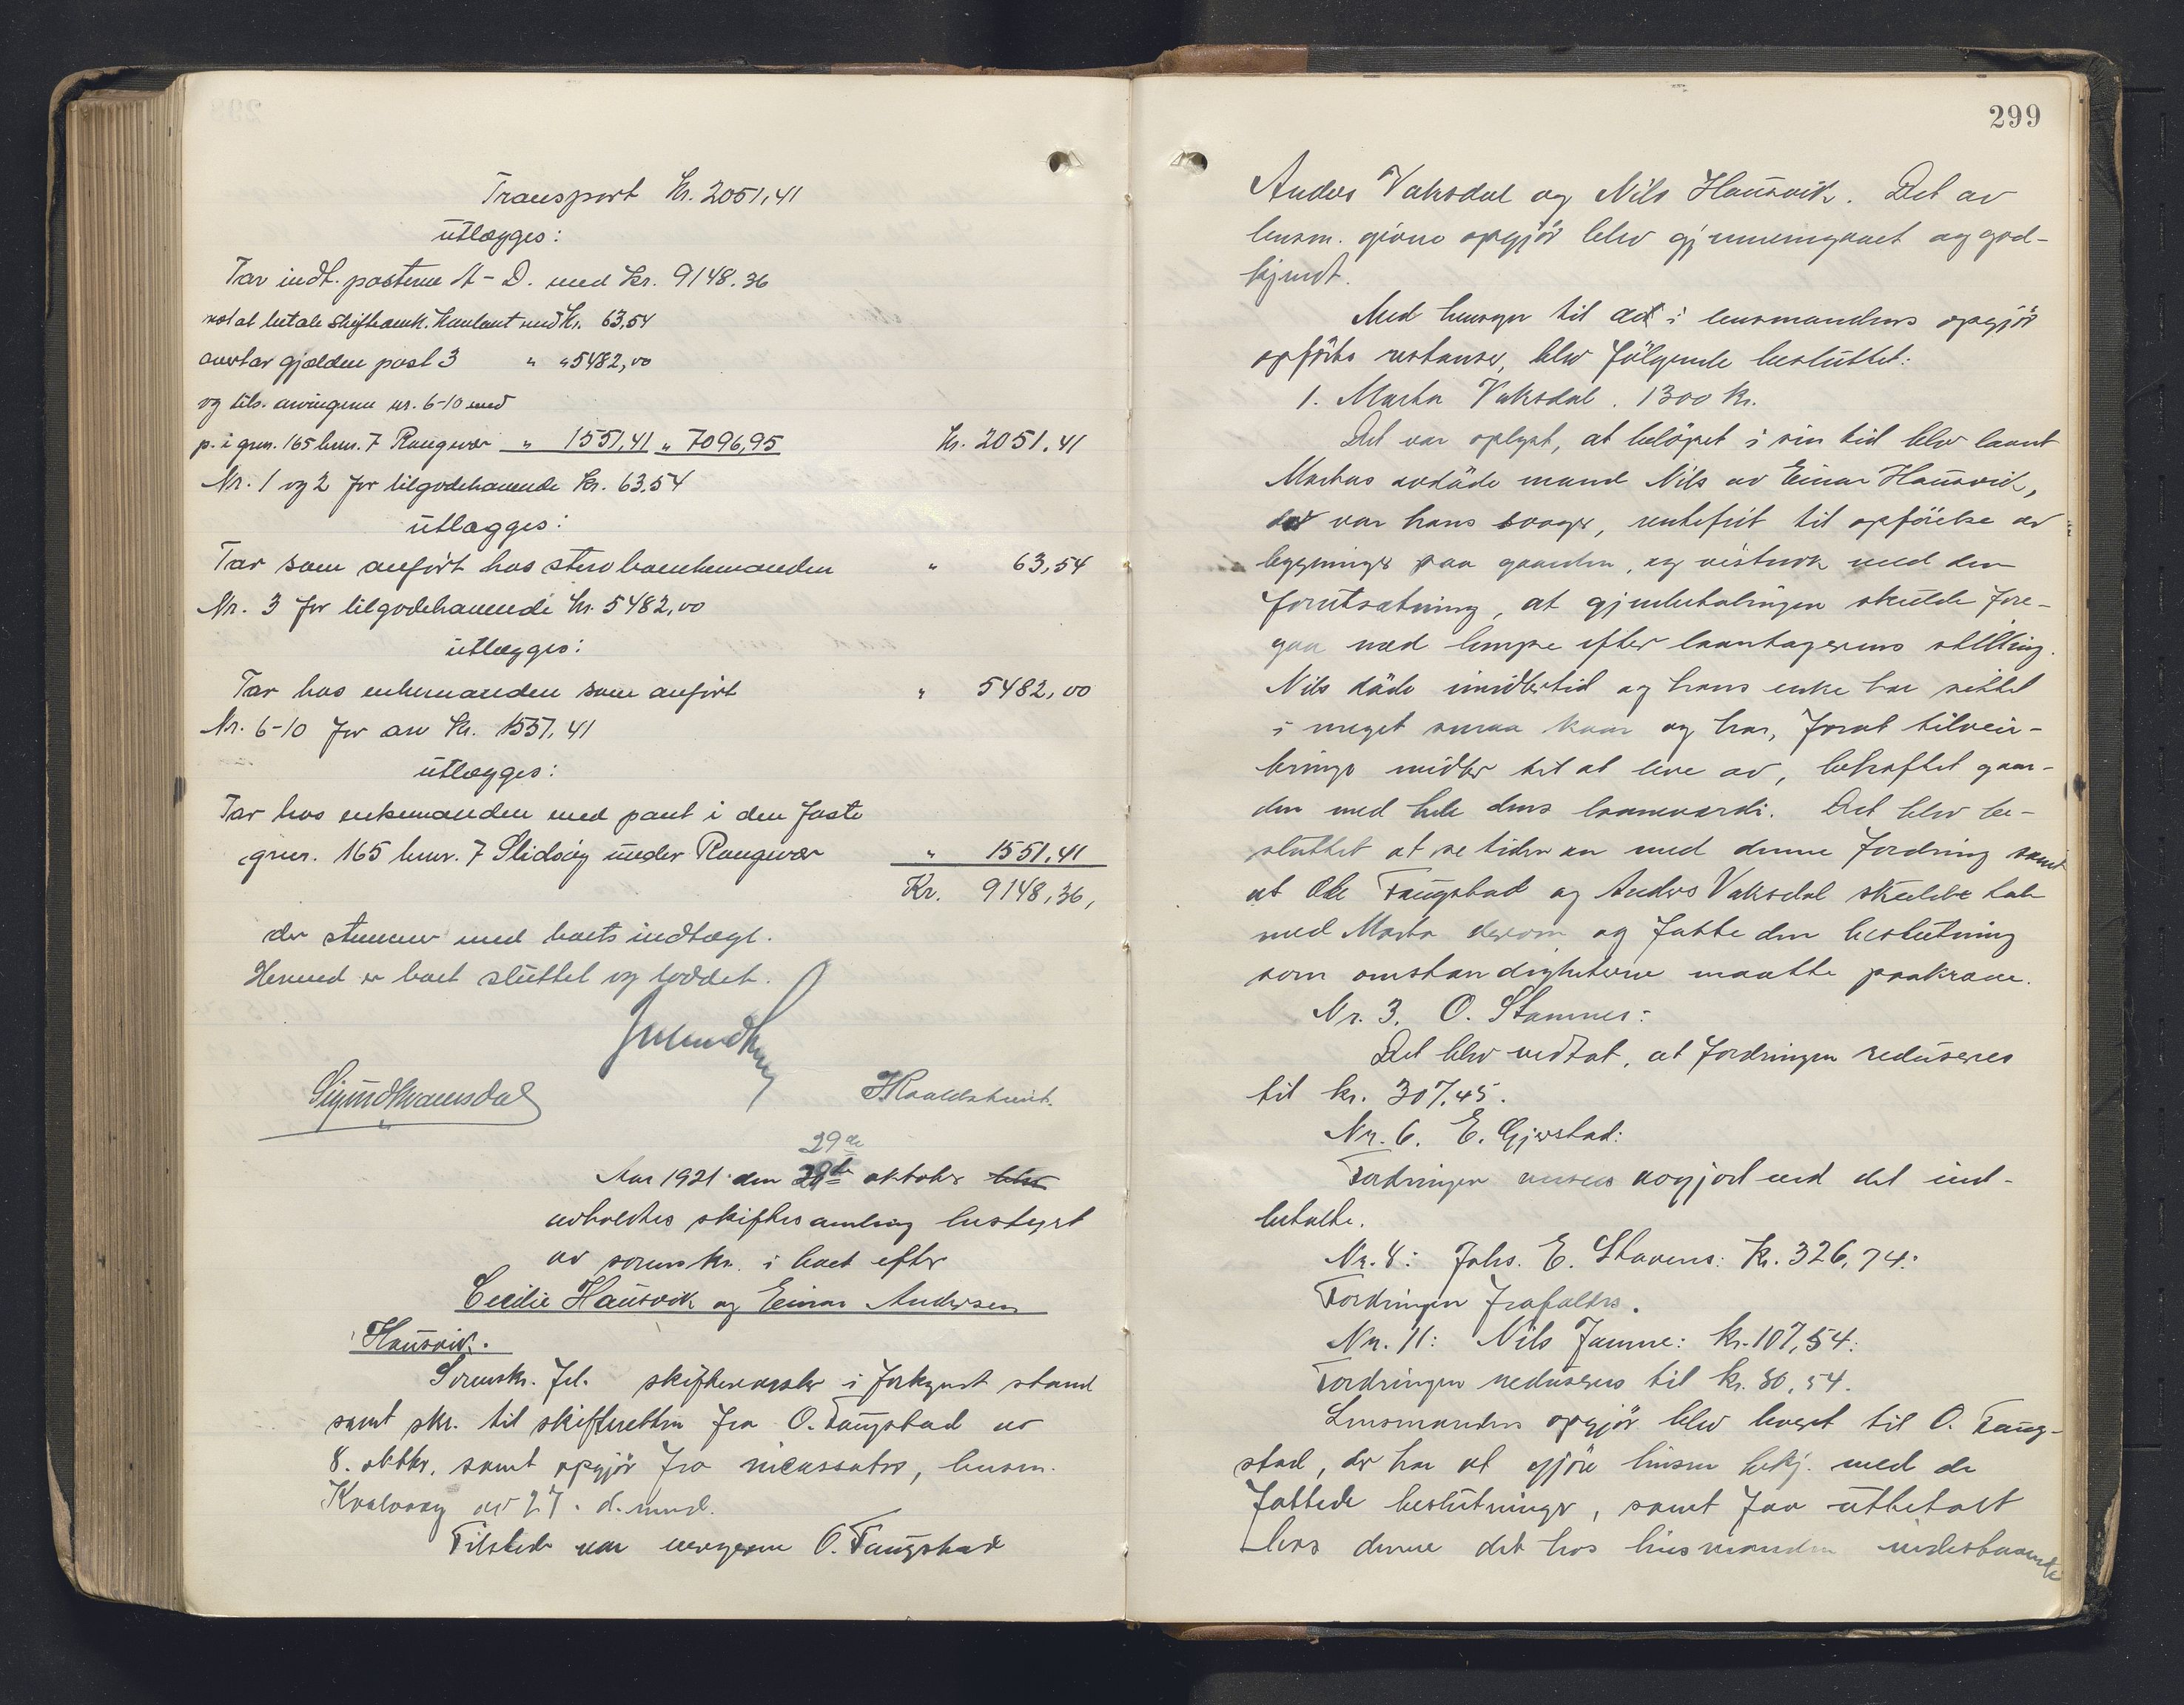 Transport Kr. 2051,41
utlægges:
Tar indt. posterne A-D. med Kr. 9148.36
mot at betale skifteomk. kontant med Kr. 63,54
overtar gjælden post 3 " " 5482,00
og tils. arvingerne nr. 6-10 med
p. i gnr. 165 bnr. 7 Rongevær " 1551,41 " 7096,95 Kr. 2051,41
Nr. 1 og 2 for tilgodehavende Kr. 63,54
utlægges:
Tar som anført hos enkemanden " 63,54
Nr. 3 for tilgodehavende Kr. 5482,00
utlægges:
Tar hos enkemanden som anført " 5482,00
Nr. 6-10 for arv Kr. 1551,41
utlægges:
Tar hos enkemanden med pant i den faste
gnr. 165 bnr. 7 under Rongevær " 1551,41
Kr. 9148,36,
der stemmer med boets indtægt.
Hermed er boet sluttet og loddet.
29de
Aar 1921 den 29de oktober blev
avholdtes skiftesamling bestyrt
av sorenskr. i boet efter
Cecilie Hausvik og Einar Andersen
Hausvik.
Sorenskr. frl. skiftevæsler i forkynt stand
samt skr. til skifteretten fra O. Faugstad av
8. oktbr. samt opgjör fra incassator, lensm.
av 27. d. mnd.
Tilstede var vergerne O. Faugstad
299
Anders Vaksdal og Nils Hausvik. Det av
lensm. givne opgjör blev gjennemgaaet og god-
kjendt.
Med hensyn til de i lensmandens opgjör
opførte restanser, blev følgende besluttet:
1. Marta Vaksdal. 1300 kr.
Det var oplyst, at beløpet i sin tid blev laant
Martas avdøde mand Nils av Einar Hausvik,
der var hans svoger, rentefrit til opførelse av
bygninger paa gaarden, og vistnok med den
forutsætning, at gjenbetalingen skulde fore-
gaa med lempe efter laantagerens stilling.
Nils døde imidlertid og hans enke har siddet
i meget smaa kaar og har, forat tilveie-
bringe midler til at leve av, behæftet gaar-
den med hele dens laaneværdi. Det blev be-
sluttet at se tiden an med denne fordring samt
at Ole Faugstad og Anders Vaksdal skulde tale
med Marta derom og fatte den beslutning
som omstændigheterne maatte paakræve.
Nr. 3. O. Stamnes:
Det blev vedtat, at fordringen reduseres
til kr. 307.45.
Nr. 6. E. Gjerstad:
Fordringen ansees avgjort med det ind-
betalte.
Nr. 8: Johs. E. Stavenes: Kr. 326,74:
Fordringen frafaldes.
Nr. 11: Nils Jamne: kr. 107,54:
Fordringen reduseres til kr. 80,54.
Lensmandens opgjör blev levert til O. Faug-
stad, der har at gjøre lensm. bekj. med de
fattede beslutninger, samt faa utbetalt
hos denne det hos lensmanden indestaaende